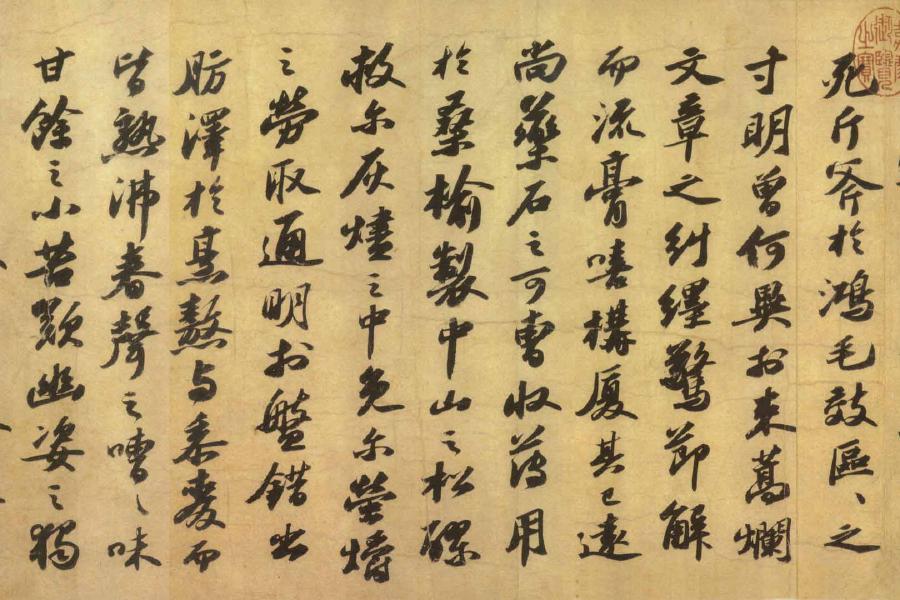 死斤斧於鴻毛效區〻之
寸明曾何異於束蒿爛
文章之糾纆驚節解
而流膏嘻構厦其已遠
尚藥石之可曹收薄用
於桑榆製中山之松醪
救尔灰燼之中免尔螢爝
之勞取通明於盤錯出
肪澤於烹熬与黍麥而
皆熟沸舂聲之嘈〻味
甘餘之小苦歎幽姿之獨